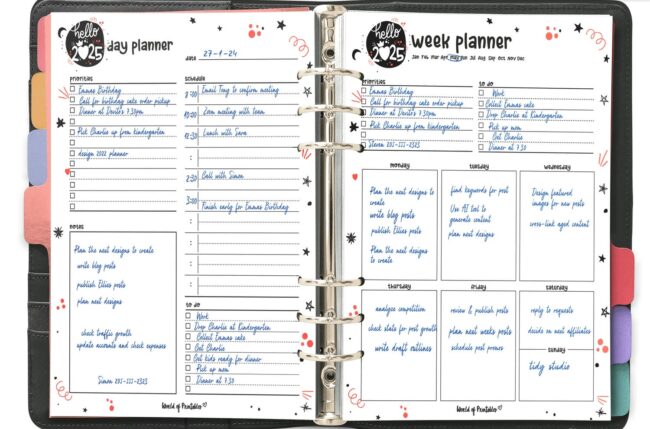 hello
2025
day planner
date 27-1-24
priorities
Emmas Birthday
Call for birthday cake order pickup
Dinner at Davito's 7.30pm
Pick Charlie up from kindergarten
design 2022 planner
schedule
8:00 Email Tony to confirm meeting
10:00 Zoom meeting with team
12:30 Lunch with Sara
2:30 Call with Simon
3:00
Finish early for Emmas Birthday
notes
Plan the next designs to
create
write blog posts
publish Ellies posts
plan next designs
check traffic growth
update accounts and check expenses
Simon 201-111-2323
to do
Work
Drop Charlie at Kindergarten
Collect Emmas cake
Get Charlie
Get kids ready for dinner
Pick up mom
Dinner at 7.30
World of Printables
hello
2025
week planner
Jan Feb Mar Apr May Jun Jul Aug Sep Oct Nov Dec
priorities
Emmas Birthday
Call for birthday cake order pickup
Dinner at Davito's 7.30pm
Pick Charlie up from kindergarten
Steven 201-111-2323
to do
Work
Collect Emmas cake
Drop Charlie at Kindergarten
Pick up mom
Get Charlie
Dinner at 7.30
monday
Plan the next designs to
create
write blog posts
publish Ellies posts
Plan the next designs
to create
tuesday
find keywords for post
Use AI tool to
generate content
plan next designs
wednesday
Design featured
images for new posts
cross-link aged content
thursday
analyze competition
check stats for post growth
write draft outlines
friday
review & publish posts
plan next weeks posts
schedule post promos
saturday
reply to requests
decide on next affiliates
sunday
tidy studio
World of Printables